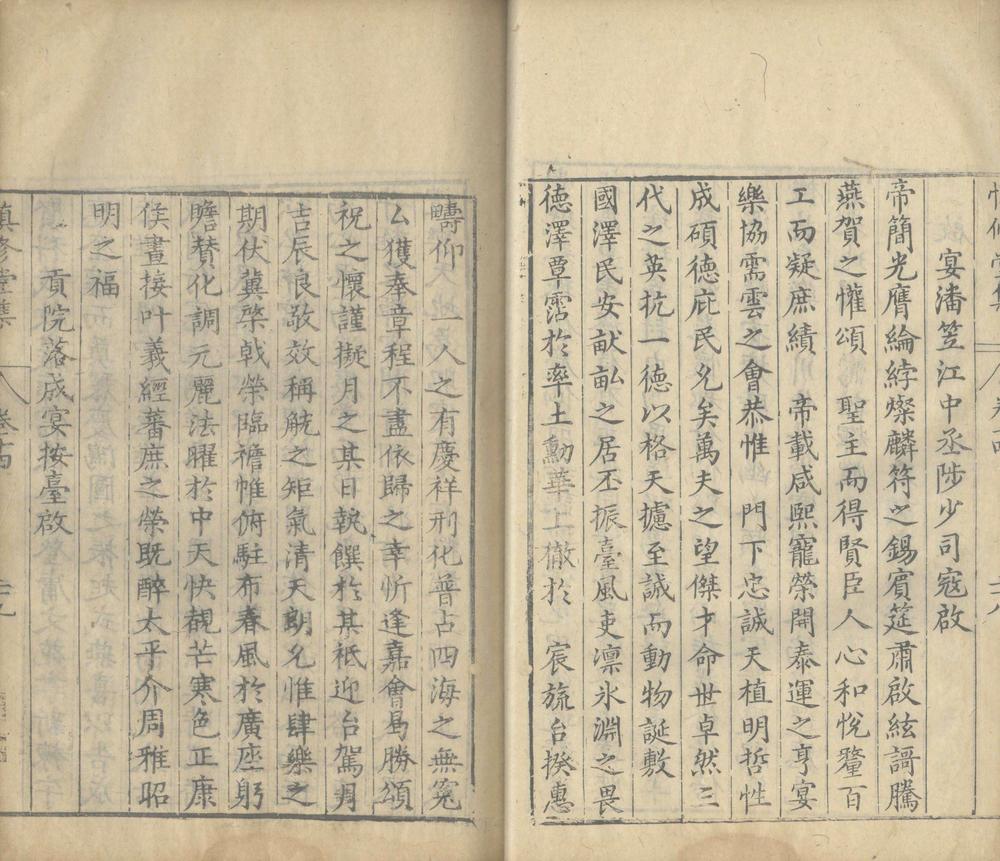 宴潘笠江中丞陟少司寇啟
帝簡光膺綸綍燦麟符之錫賓筵肅啟絃謌騰
燕賀之懽頌　聖主而得賢臣人心和悅釐百
工而凝庶績　帝載咸熙寵榮開泰運之亨宴
樂協需雲之會恭惟　門下忠誠天植明哲性
成碩德庇民允矣萬夫之望傑才命世卓然三
代之英抗一德以格天攄至誠而動物誕敷
國澤民安畎畝之居丕振臺風吏凛氷淵之畏
德澤覃霑於率土勳華上徹於　宸旒台揆惠
疇仰一人之有慶祥刑化普占四海之無冤
厶獲奉章程不盡依歸之幸忻逢嘉會曷勝頌
祝之懷謹擬月之某日執饌於某祗迎台駕
吉辰良敬效稱觥之矩氣清天朗允惟肆樂之
期伏冀棨戟榮臨襜帷俯駐布春風於廣座躬
瞻賛化調元麗法曜於中天快覩芒寒色正康
侯晝接叶羲經蕃庶之榮既醉太平介周雅昭
明之福
貢院落成宴按臺啟
慎修堂集　卷十四